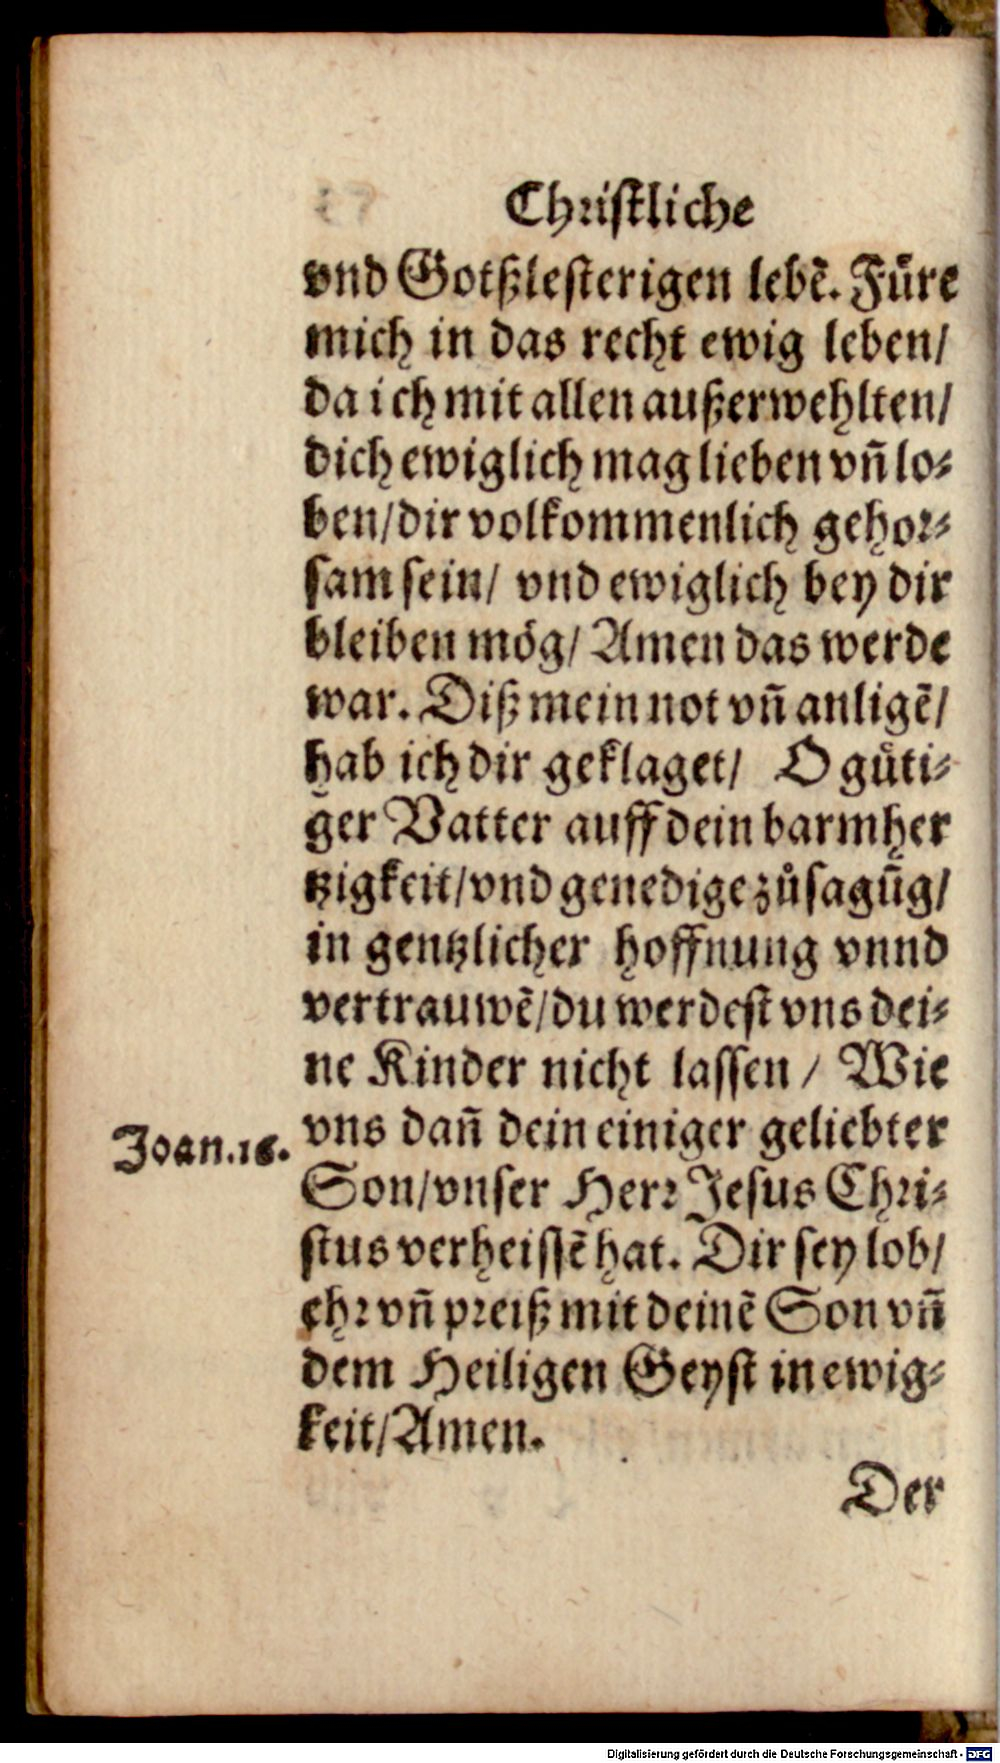 Christliche
vnd Gotßlesterigen lebē. Füre
mich in das recht ewig leben/
da ich mit allen außerwehlten/
dich ewiglich mag lieben vñ lo-
ben/dir volkommenlich gehor-
sam sein/ vnd ewiglich bey dir
bleiben mög/ Amen das werde
war. Diß mein not vñ anligē/
hab ich dir geklaget/ O gůti-
ger Vatter auff dein barmher
tzigkeit/vnd genedige zůsagūg/
in gentzlicher hoffnung vnnd
vertrauwē/du werdest vns dei-
ne Kinder nicht lassen / Wie
Joan.16. vns dañ dein einiger geliebter
Son/vnser Herr Jesus Chri-
stus verheissē hat. Dir sey lob/
ehr vñ preiß mit deinē Son vñ
dem Heiligen Geyst in ewig-
keit/Amen.
Der
Digitalisierung gefördert durch die Deutsche Forschungsgemeinschaft - DFG